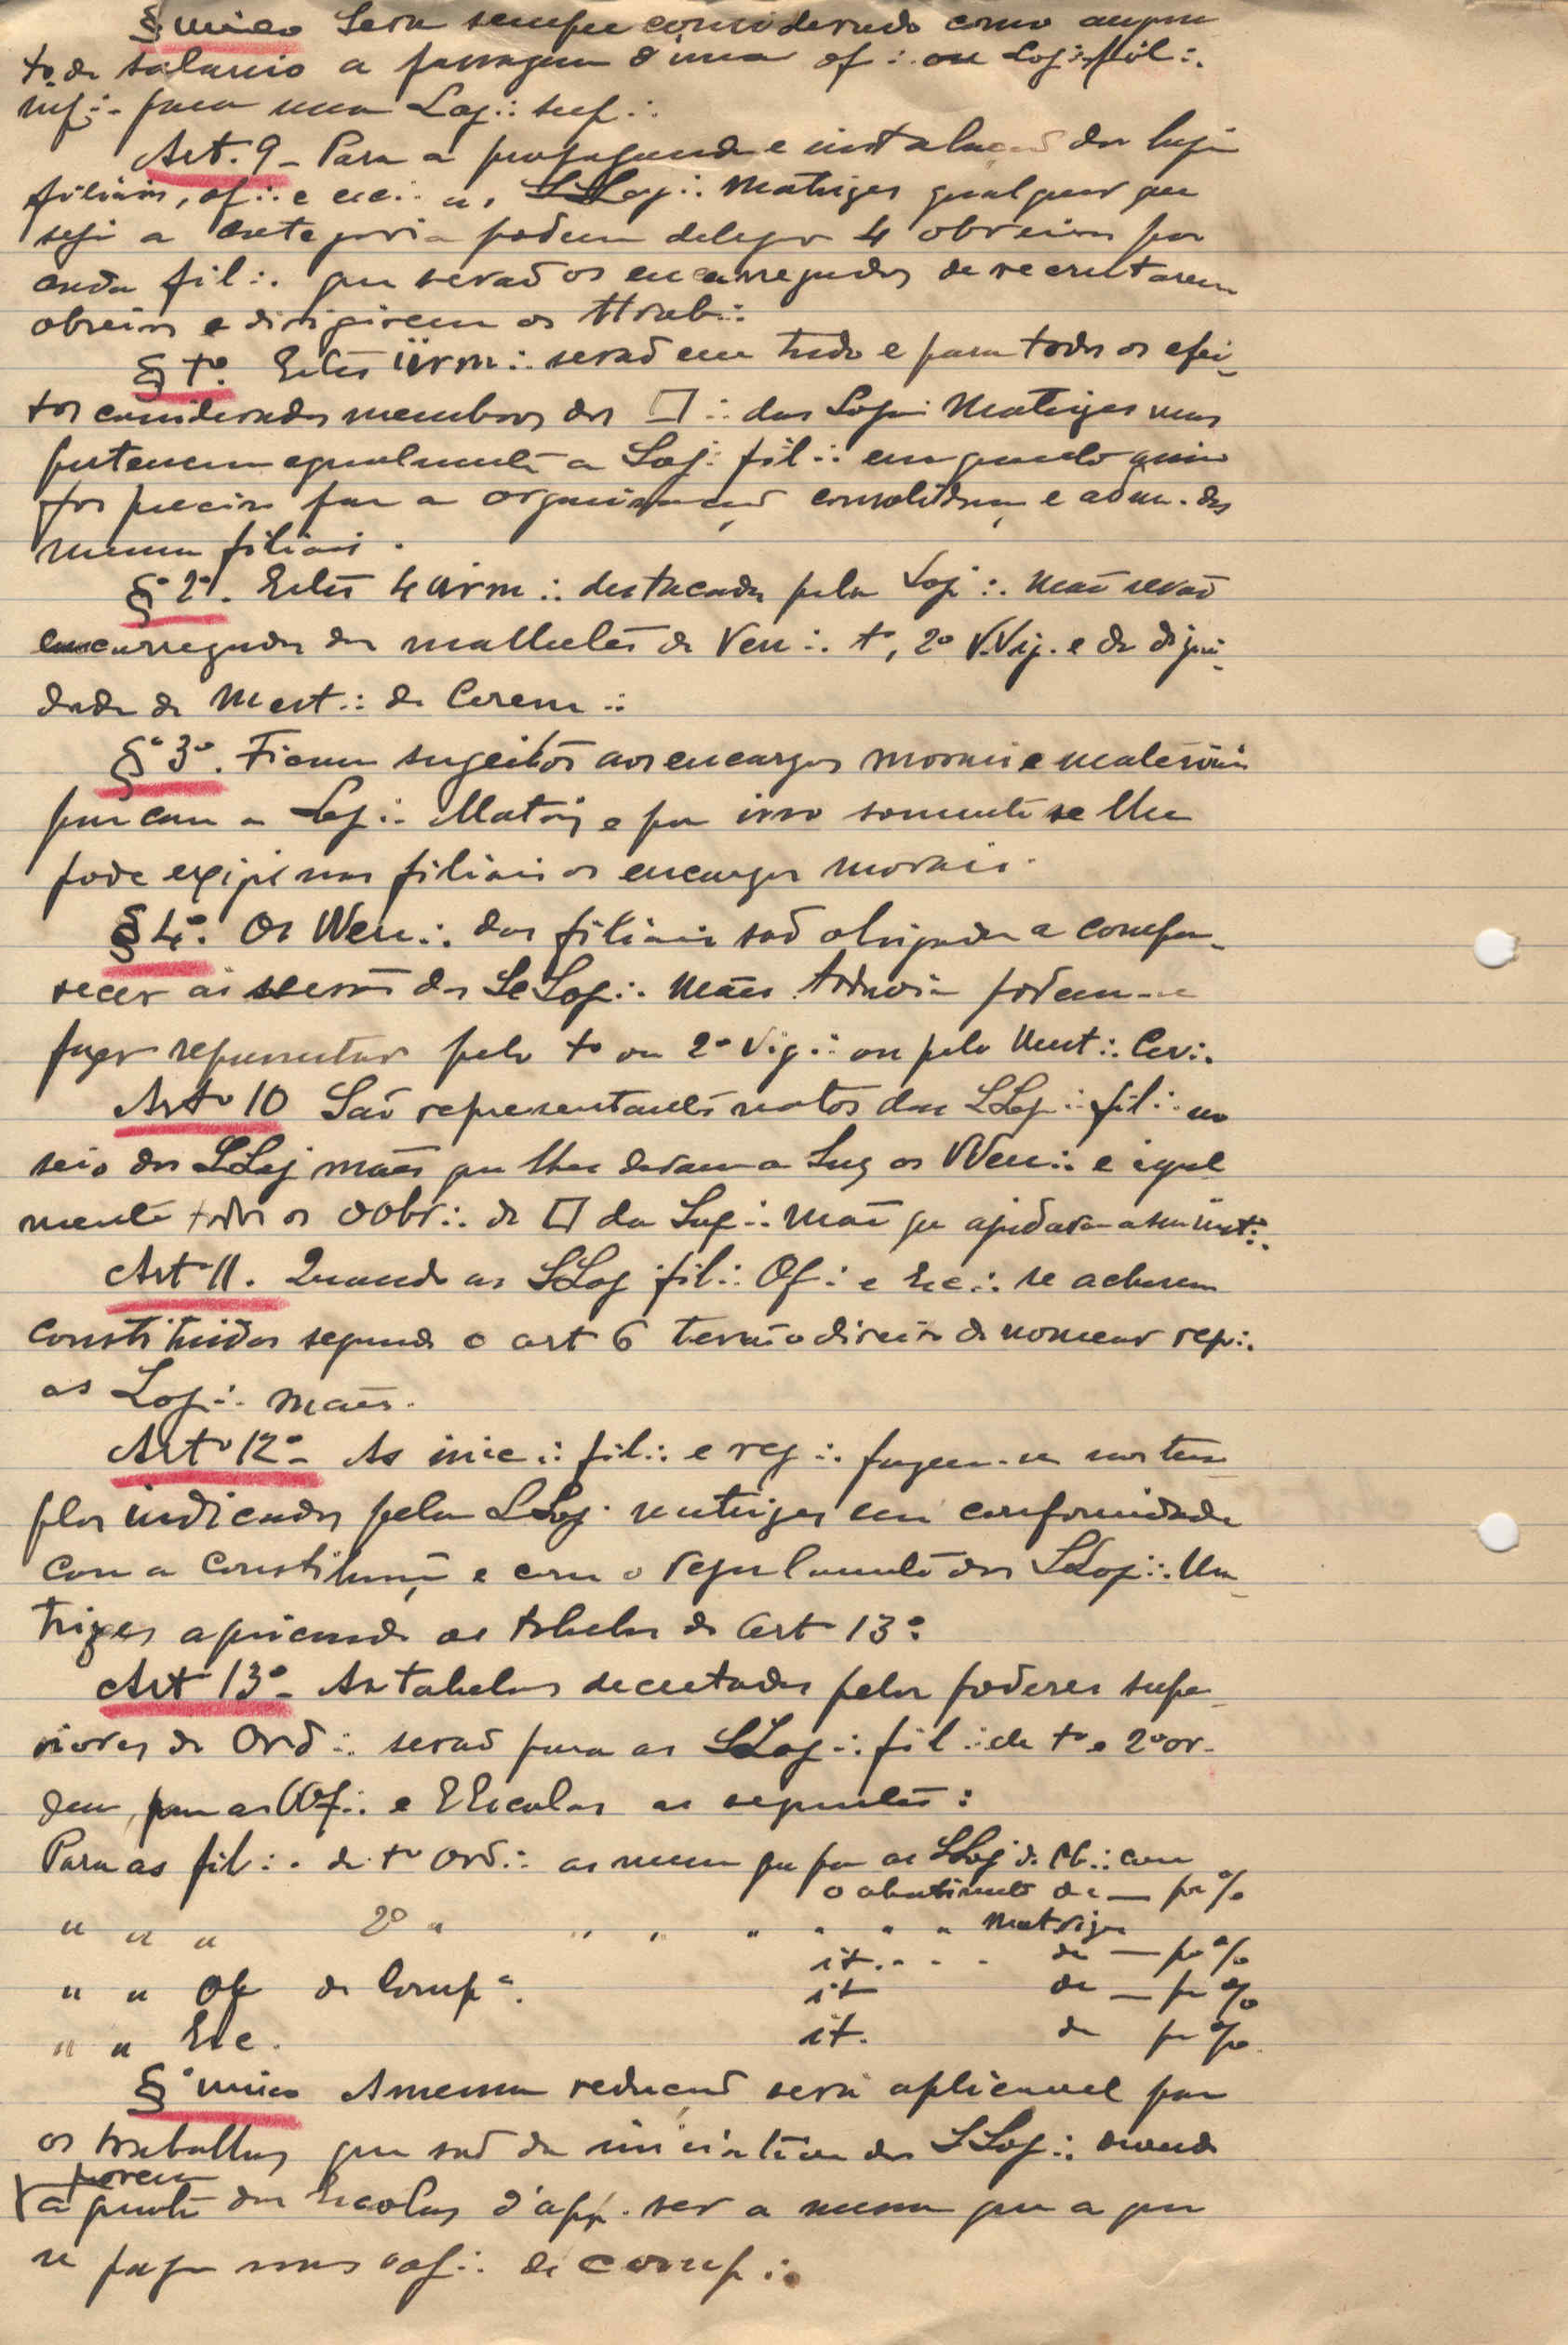 § unico Sera sempre considerado como augmen
to de salario a passagem d'uma of∴ ou Loj∴ fil∴
inf∴ para uma Loj∴ sup∴
Art. 9 - Para a propaganda e instalação das lojas
filiais, of∴ e esc∴ as LLoj∴ Matrizes qualquer que
seja a categoria podem delegar 4 obreiros por
cada fil∴ que serão os encarregados de recrutarem
obreiros e dirigirem os ttrab∴
§ 1º. Estes iirm∴ serão em tudo e para todos os efei-
tos considerados membros dos □∴ das Loj∴ Matrizes mas
pertencem egualmente a Loj∴ fil∴ em quanto
for preciso para a organisação consolidação e adm. das
mesmas filiais.
§ 2º. Estes 4 iirm∴ destacados pela Loj∴ Mãe serão
encarregados dos malhetes de Ven∴ 1º, 2º VVig. e da digni-
dade de Mest∴ de Cerem∴
§ 3º. Ficam sugeitos aos encargos moraes e materiais
para com a Loj∴ Matriz e por isso somente se lhe
pode exigir nas filiais os encargos morais.
§ 4º. Os VVen∴ das filiais são obrigados a compa-
recer ás sessões das LLoj∴ Mães todavia podem-se
fazer representar pelo 1º ou 2º Vig∴ ou pelo Mest∴ Cer∴
Artº 10 São representantes natos das LLoj∴ fil∴ no
seio das LLoj mães que lhes deram a Luz os VVen∴ e egual
mente todos os oobr∴ do □ da Loj∴ Mãe que ajudaram a sua inst∴
Art 11. Quando as LLoj fil∴ Of∴ e Esc∴ se acharem
constituidas segundo o art 6 terão o direito de nomear rep∴
as Loj∴ mães.
Artº 12º - As inic∴ fil∴ e reg∴ fazem-se nos tem-
plos indicados pelas LLoj∴ matrizes em conformidade
com a constituição e com o regulamento das LLoj∴ Ma-
trizes aplicando as tabelas do art 13º
Art 13º - As tabelas decretadas pelos poderes supe-
riores da Ord∴ serão para as LLoj∴ fil∴ de 1ª e 2ª or-
dem, para as OOf∴ e EEscolas as seguintes:
Para as fil∴ de 1ª Ord∴ as mesmas que para as LLoj de Pl∴ com
o abatimento de — por %
" " " 2ª " " " " " " " Matrizes
it. . . . de — por %
" " Of de Compª. it de — por %
" " Esc. it. de por %
§ unico A mesma redução será aplicavel para
os trabalhos que são da iniciativa das LLoj∴ devendo
porem
a quota das Escolas d'app. ser a mesma que a que
se paga nas oof∴ de comp∴